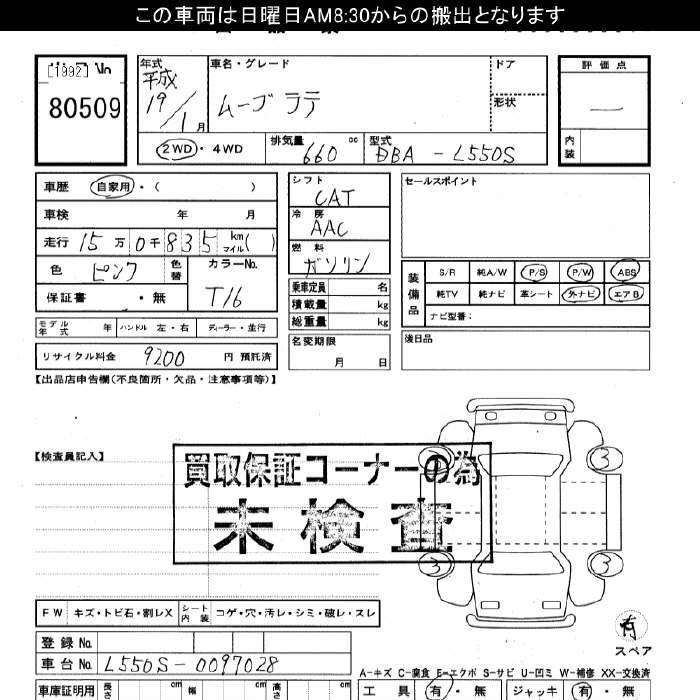 この車両は日曜日AM8:30からの搬出となります
[1992]
80509
年式
平成
19/1月
車名・グレード
ムーヴ ラテ
ドア
形状
評価点
内装
2WD・4WD
排気量
660 cc
型式
DBA-L550S
車歴 自家用・( )
車検 年 月
走行 15万0千835 km マイル( )
色 ピンク
色替
カラーNo.
T16
保証書 ・無
モデル年式 年 ハンドル 左・右 ディーラー・並行
リサイクル料金 9200 円 預託済
シフト
CAT
冷房
AAC
燃料
ガソリン
乗車定員 名
積載量 kg
総重量 kg
名変期限
月 日
セールスポイント
装備品
S/R 純A/W P/S P/W ABS
純TV 純ナビ 革シート 外ナビ エアB
ナビ型番:
後日品
【出品店申告欄(不良箇所・欠品・注意事項等)】
【検査員記入】
買取保証コーナーの為
未検査
3 3
3 3
有
スペア
FW キズ・トビ石・割レX シート内装 コゲ・穴・汚レ・シミ・破レ・スレ
登録No.
車台No. L550S-0097028
A-キズ C-腐食 E-エクボ S-サビ U-凹ミ W-補修 XX-交換済
車庫証明用 長さ cm 幅 cm 高さ cm
工具 有・無 ジャッキ 有・無